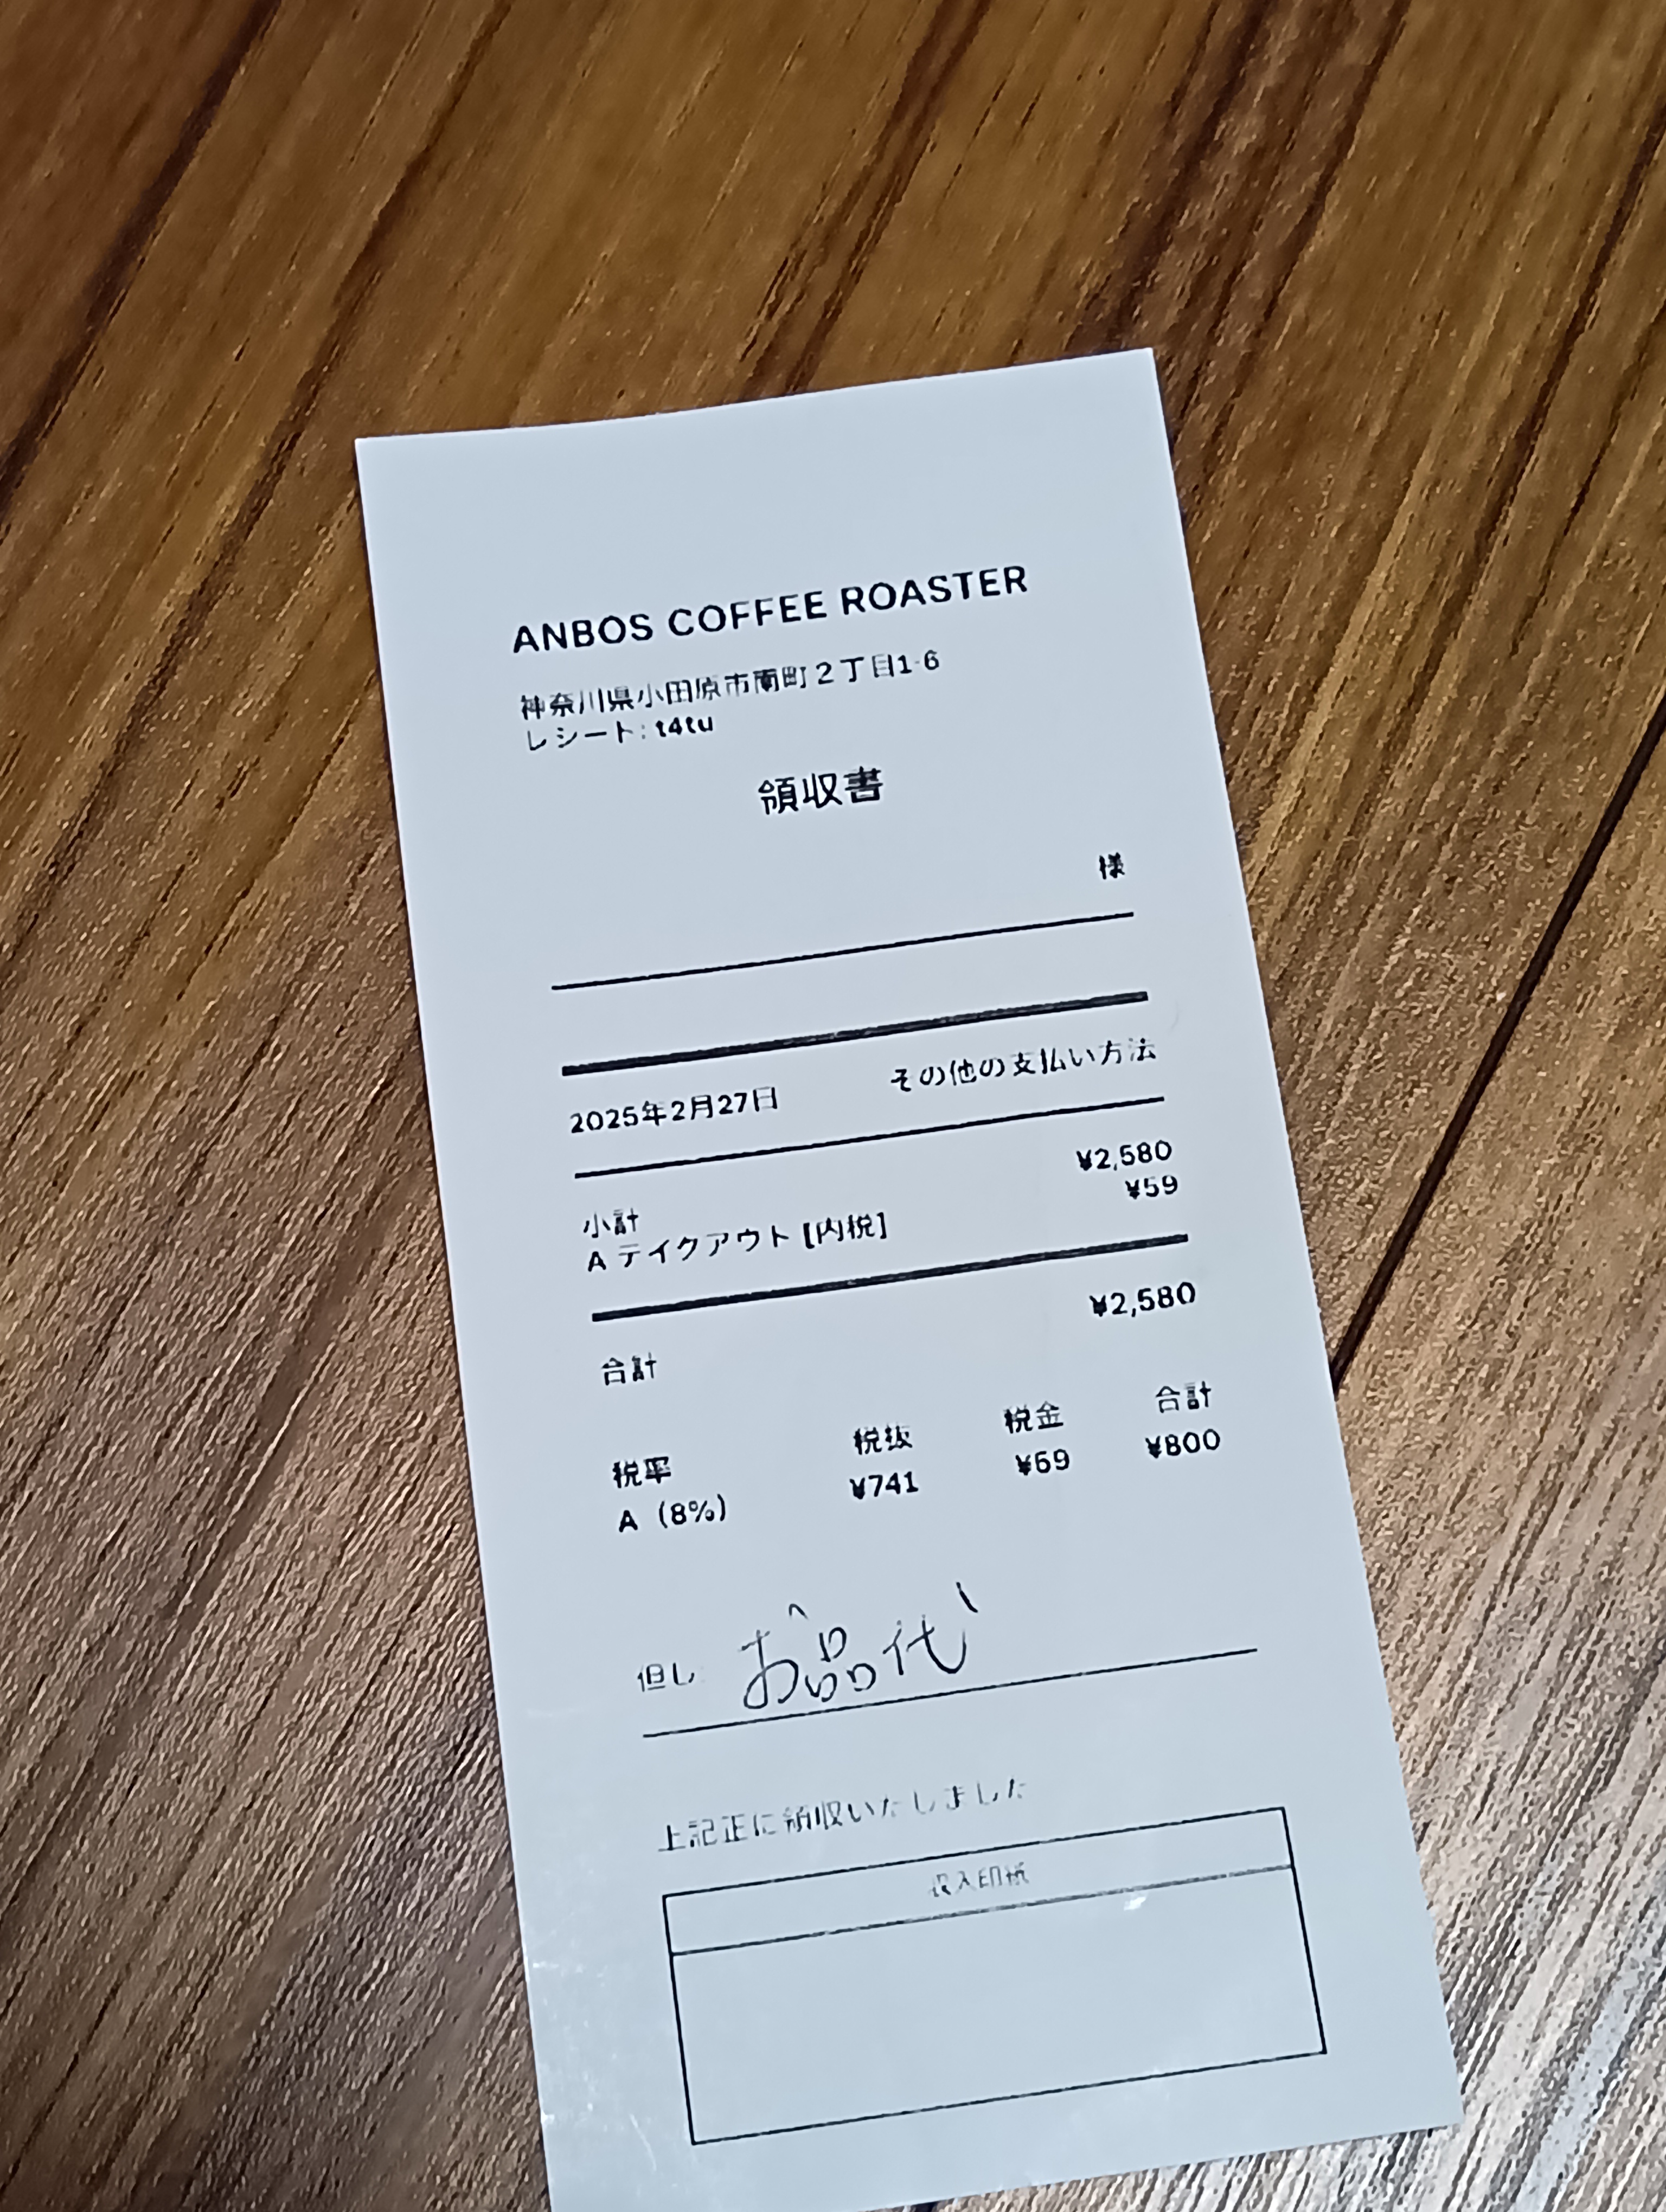 ANBOS COFFEE ROASTER
神奈川県小田原市南町2丁目1-6
レシート: t4tu
領収書
様
2025年2月27日 その他の支払い方法
小計 ¥2,580
A テイクアウト [内税] ¥59
合計 ¥2,580
税率 税抜 税金 合計
A (8%) ¥741 ¥59 ¥800
但し: お品代
上記正に領収いたしました
収入印紙